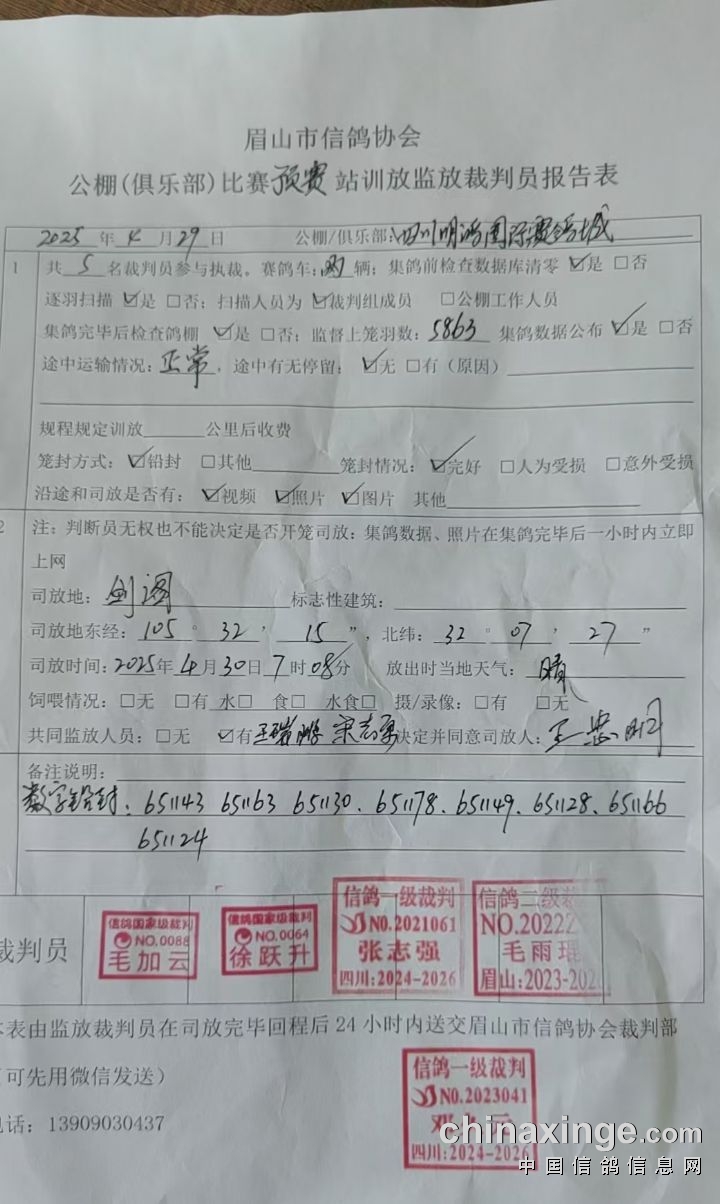 眉山市信鸽协会
公棚(俱乐部)比赛预赛站训放监放裁判员报告表
2025年4月29日 公棚/俱乐部:四川明鸿国际赛鸽城
1 共5名裁判员参与执裁。赛鸽车:两辆;集鸽前检查数据库清零 ☑是 □否
逐羽扫描 ☑是 □否;扫描人员为 ☑裁判组成员 □公棚工作人员
集鸽完毕后检查鸽棚 ☑是 □否;监督上笼羽数:5863 集鸽数据公布 ☑是 □否
途中运输情况:正常,途中有无停留:☑无 □有(原因)
规程规定训放______公里后收费
笼封方式:☑铅封 □其他________笼封情况:☑完好 □人为受损 □意外受损
沿途和司放是否有:☑视频 ☑照片 ☑图片 其他
2 注:判断员无权也不能决定是否开笼司放;集鸽数据、照片在集鸽完毕后一小时内立即
上网
司放地:剑阁 标志性建筑:
司放地东经:105°32′15″,北纬:32°07′27″
司放时间:2025年4月30日7时08分 放出时当地天气:晴
饲喂情况:□无 □有 水□ 食□ 水食□ 摄/录像:□有 □无
共同监放人员:□无 ☑有 决定并同意司放人:王忠明
备注说明:
数字铅封:651143 651163 651130、651178、651149、651128、651166
651124
裁判员
信鸽国家级裁判
NO.0088
毛加云
信鸽国家级裁判
NO.0064
徐跃升
信鸽一级裁判
NO.2021061
张志强
四川:2024-2026
信鸽二级裁
NO.2022
毛雨琨
眉山:2023-202
本表由监放裁判员在司放完毕回程后24小时内送交眉山市信鸽协会裁判部
(可先用微信发送)
电话:13909030437
信鸽一级裁判
NO.2023041
四川:2024-2026
chinaxinge.com
中国信鸽信息网